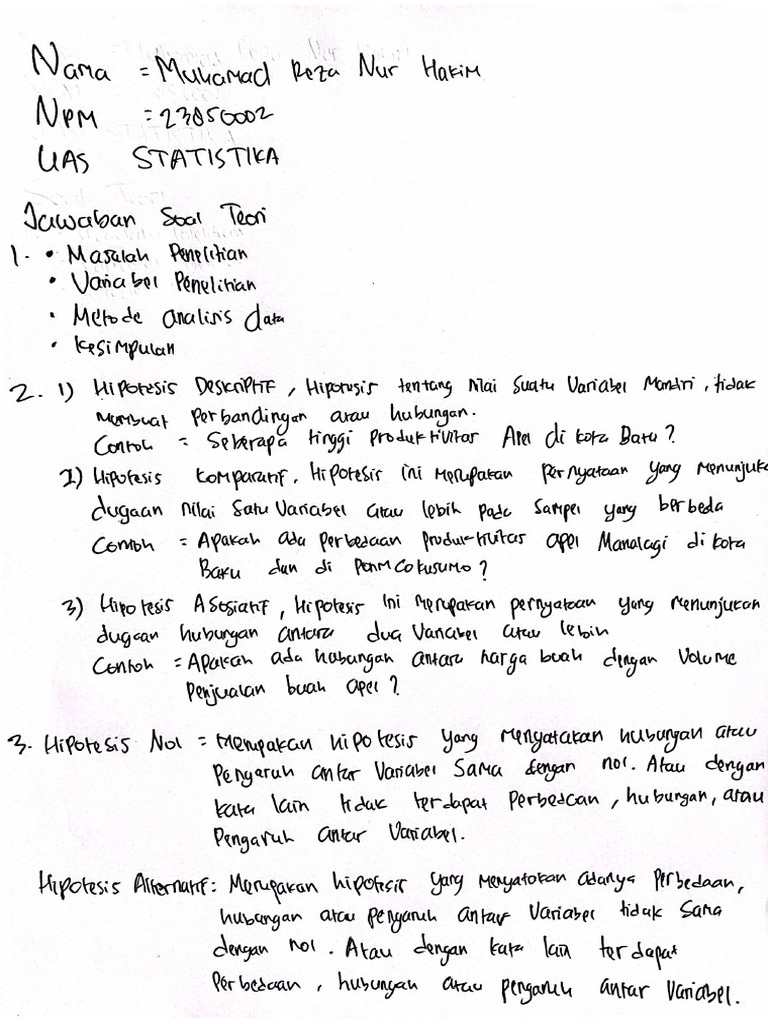 Nama = Muhamad Reza Nur Hakim
NPM = 23050002
UAS STATISTIKA
Jawaban Soal Teori
1. • Masalah Penelitian
• Variabel Penelitian
• Metode analisis data
• Kesimpulan
2. 1) Hipotesis Deskriptif, Hipotesis tentang nilai suatu Variabel Mandiri, tidak
membuat perbandingan atau hubungan.
Contoh = Seberapa tinggi produktivitas Apel di kota Batu?
2) Hipotesis Komparatif, Hipotesis ini merupakan pernyataan yang menunjuk
dugaan nilai satu variabel atau lebih pada sampel yang berbeda
Contoh = Apakah ada perbedaan produktivitas apel Manalagi di kota
Batu dan di Poncokusumo?
3) Hipotesis Asosiatif, Hipotesis ini merupakan pernyataan yang menunjukan
dugaan hubungan antara dua variabel atau lebih
Contoh = Apakah ada hubungan antara harga buah dengan volume
penjualan buah apel?
3. Hipotesis Nol = merupakan hipotesis yang menyatakan hubungan atau
pengaruh antar variabel sama dengan nol. Atau dengan
kata lain tidak terdapat perbedaan, hubungan, atau
pengaruh antar variabel.
Hipotesis Alternatif: Merupakan hipotesis yang menyatakan adanya perbedaan,
hubungan atau pengaruh antar variabel tidak sama
dengan nol. Atau dengan kata lain terdapat
perbedaan, hubungan atau pengaruh antar variabel.